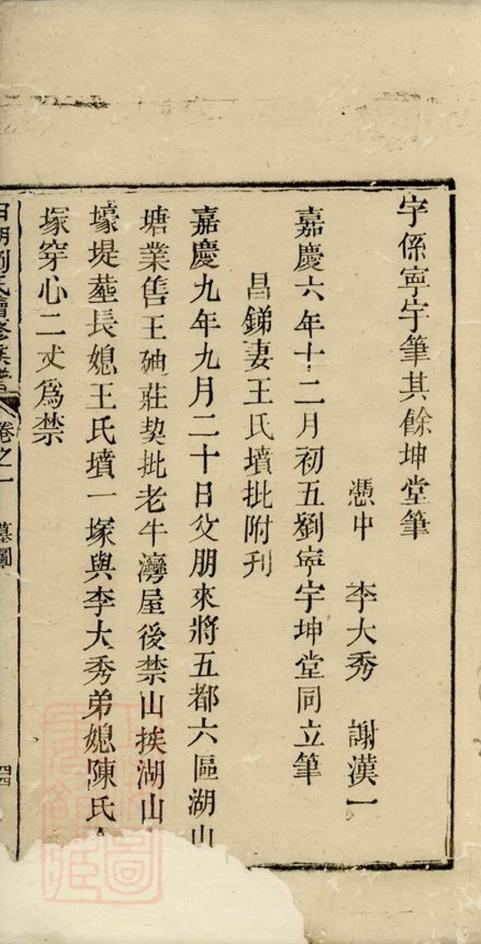 字係寧宇筆其餘坤堂筆
憑中 李大秀 謝漢一
嘉慶六年十二月初五劉寧宇坤堂同立筆
昌銻妻王氏墳批附刊
嘉慶九年九月二十日父朋來將五都六區湖山
塘業售王廸莊契批老牛灣屋後禁山挨湖山
壕堤塟長媳王氏墳一塚與李大秀弟媳陳氏
塚穿心二丈爲禁
劉氏續修族譜 卷之一 墓圖 四四